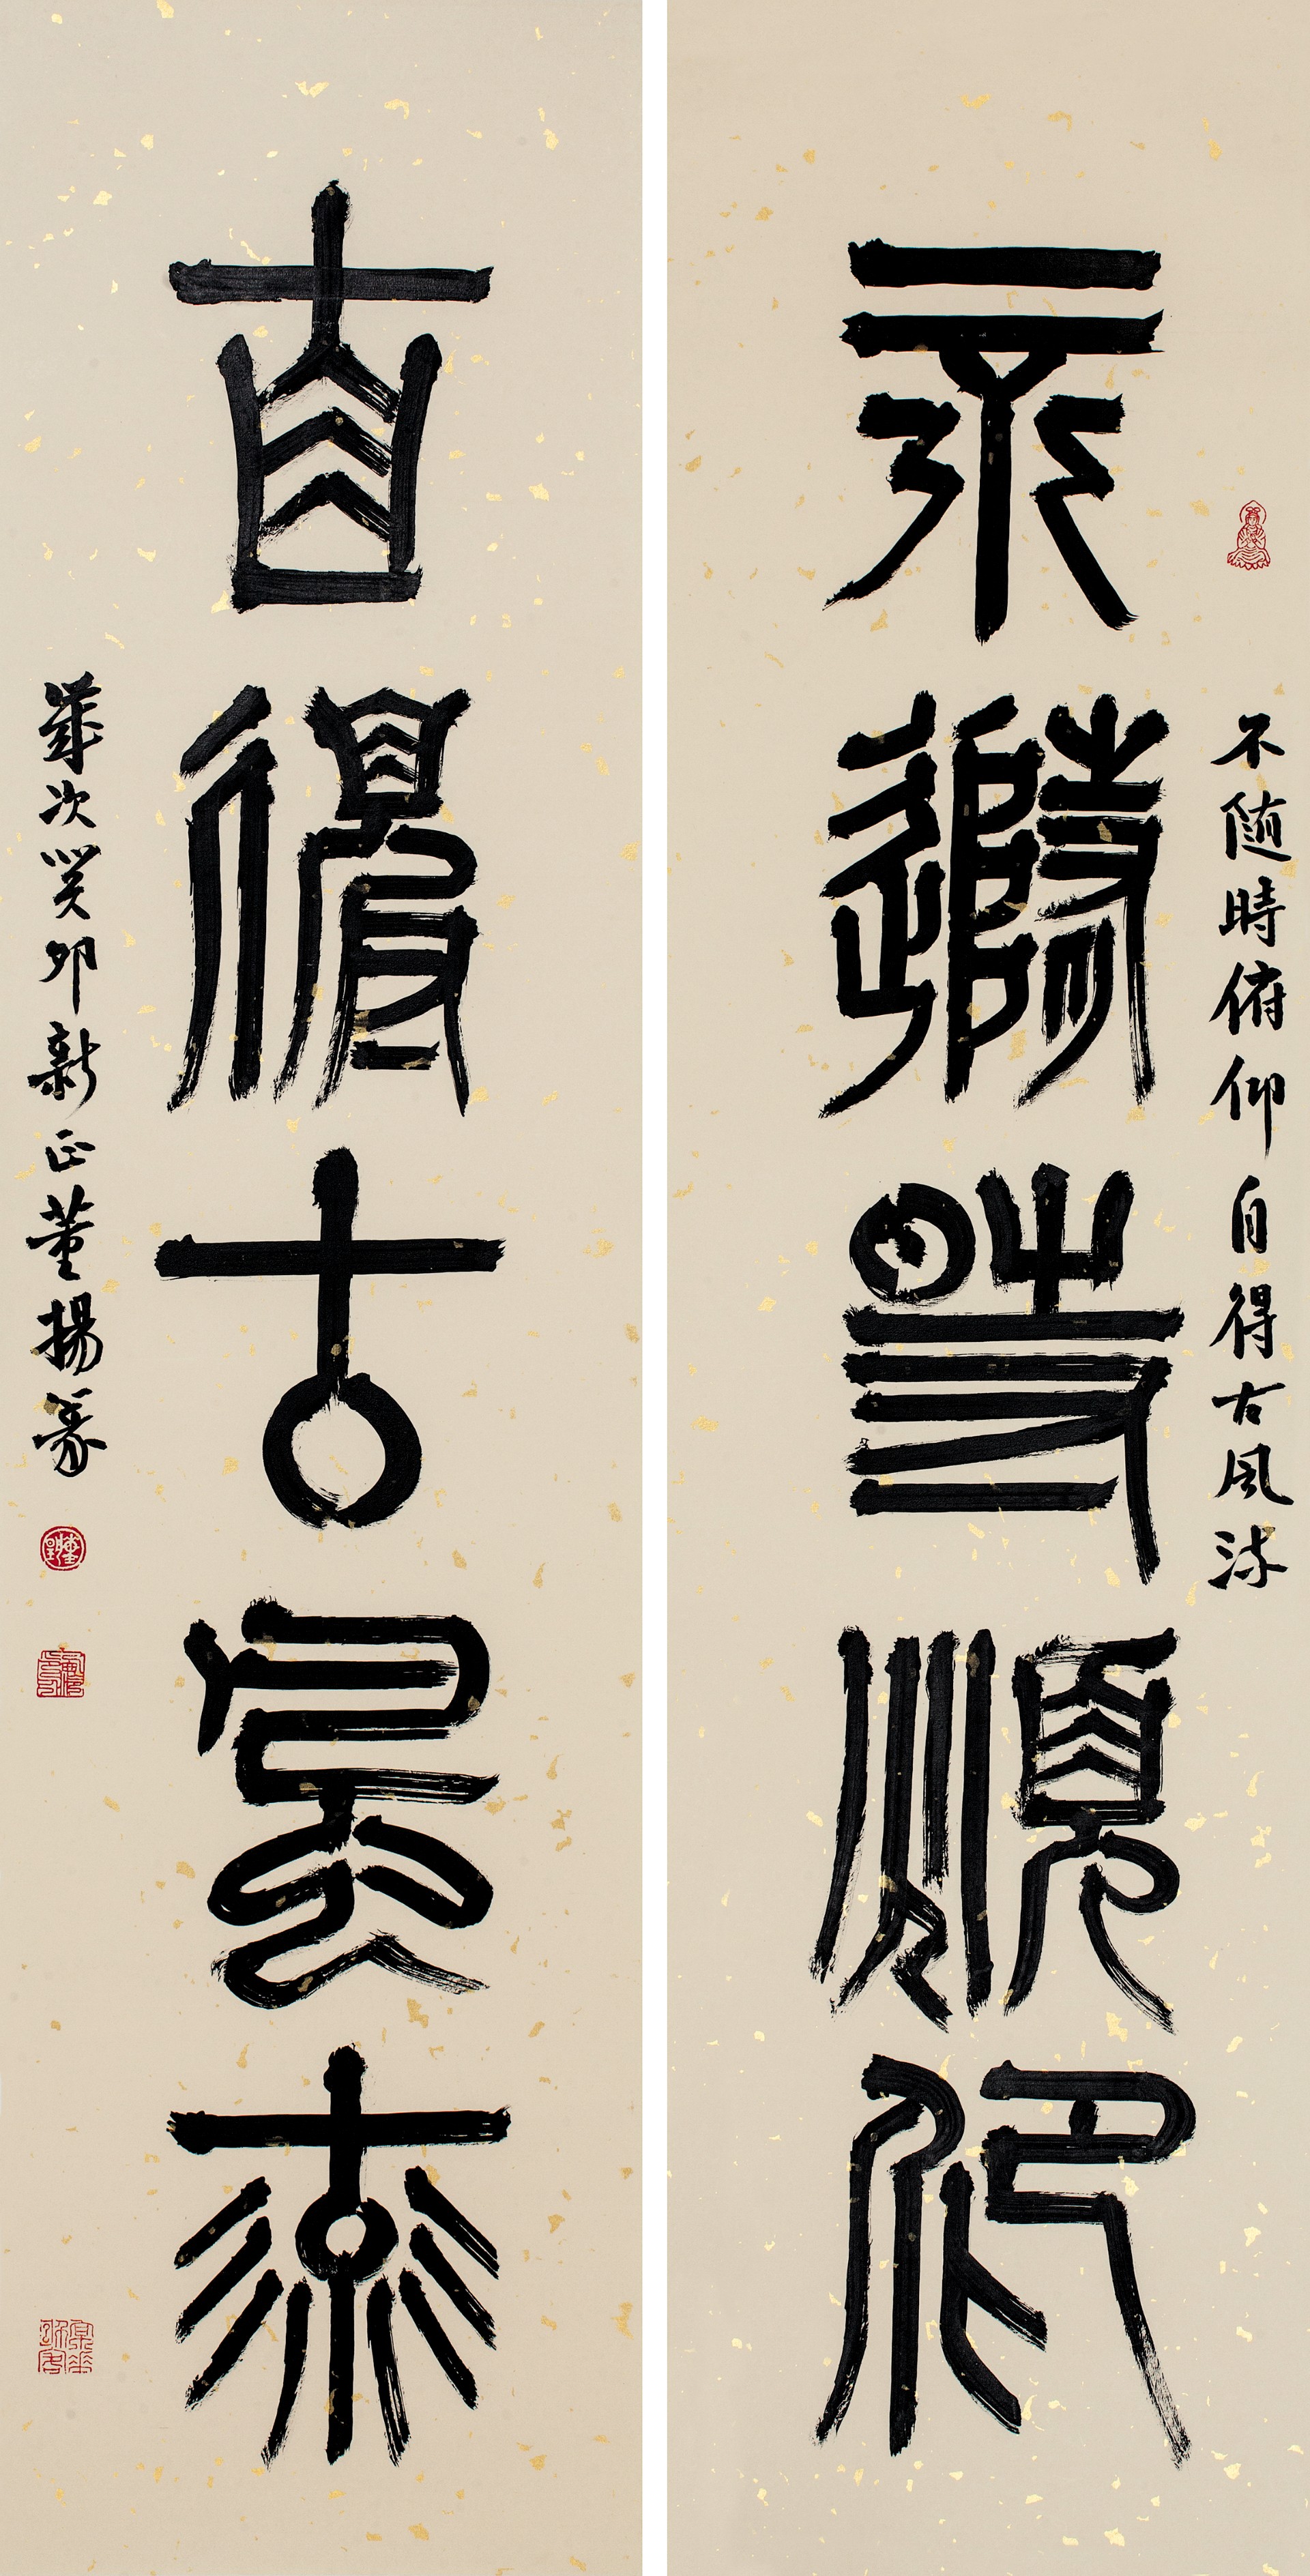 不隨時順仰
直得古風流
不随時俯仰自得古風流
歲次癸卯新正董揚篆